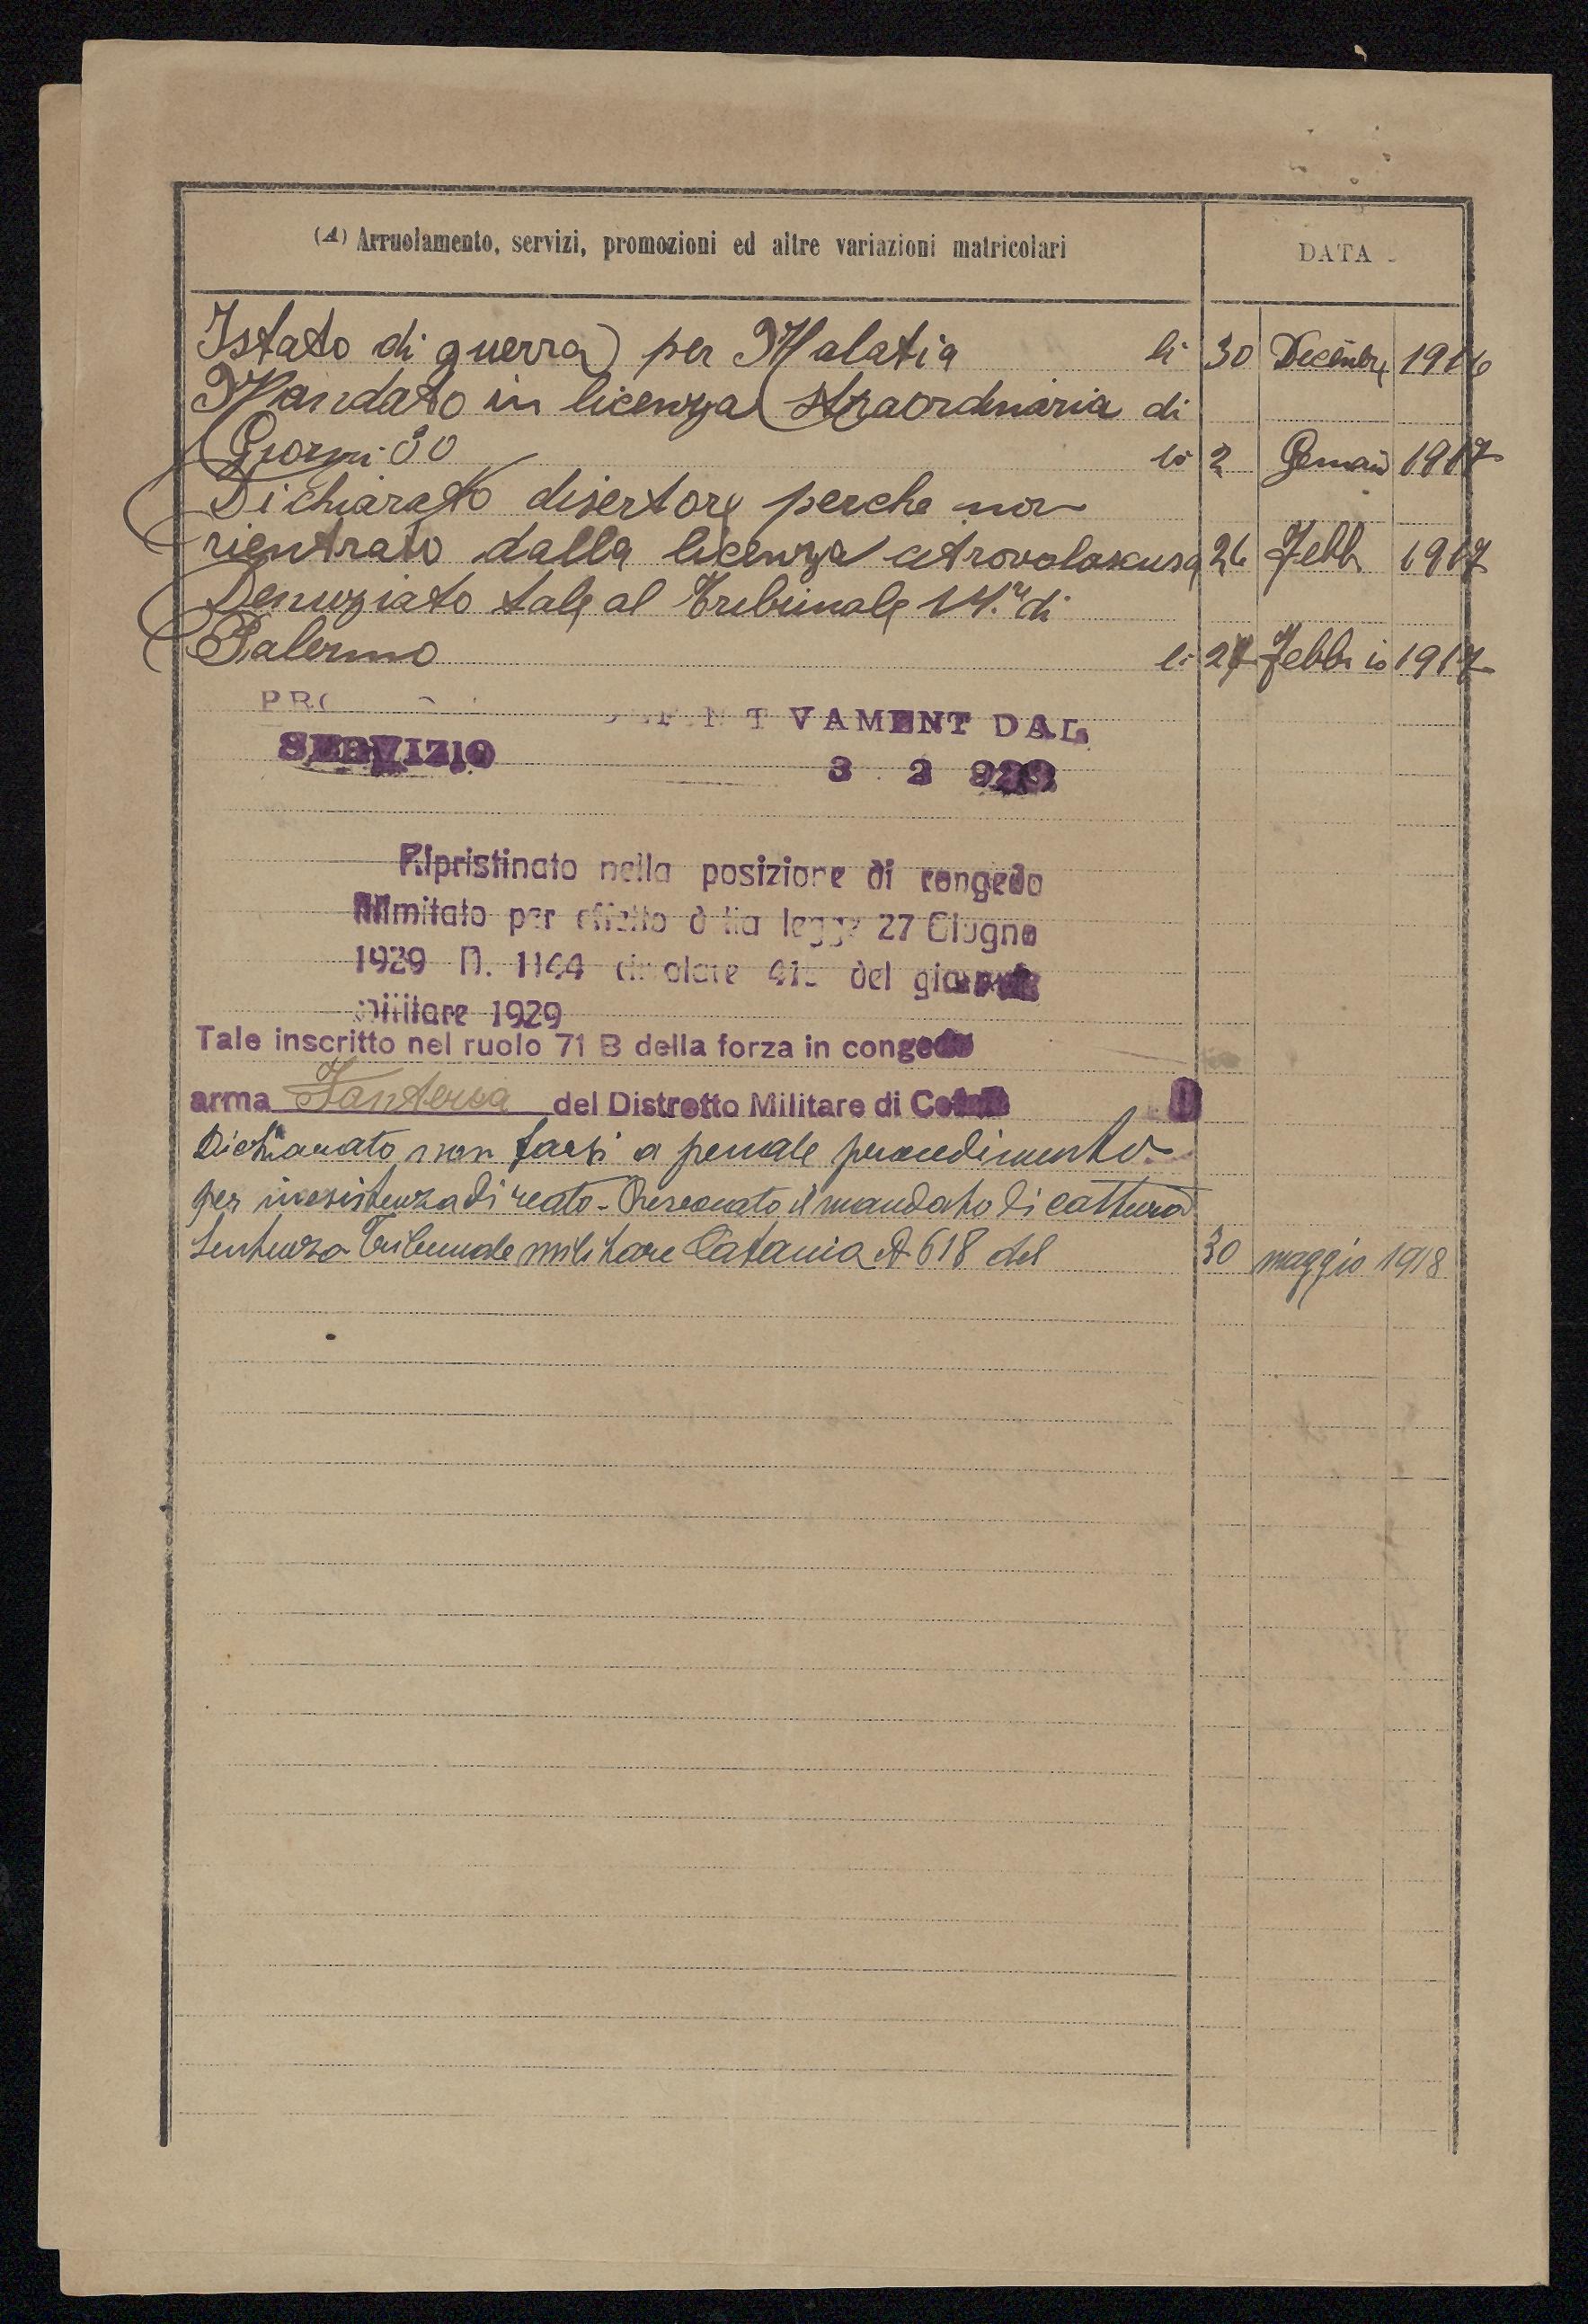 (A) Arruolamento, servizi, promozioni ed altre variazioni matricolari DATA
Istato di guerra) per Malatia li 30 Decembre 1916
Mandato in licenza straordinaria di
Giorni 30 li 2 Gennaio 1917
Dichiarato disertore perche non
rientrato dalla licenza 26 Febb 1917
Denuziato tale al Tribunale di
Palermo li 27 Febbraio 1917
VAMENT DAL
SERVIZIO 3 2 929
Ripristinato nella posizione di congedo
illimitato per effetto della legge 27 Giugno
1929 N. 1144 circolare del giornale
militare 1929
Tale inscritto nel ruolo 71 B della forza in congedo
arma Fanteria del Distretto Militare di
Dichiarato non farsi a penale procedimento
per inesistenza di reato - il mandato di cattura
Sentenza Tribunale militare Catania 618 del 30 maggio 1918